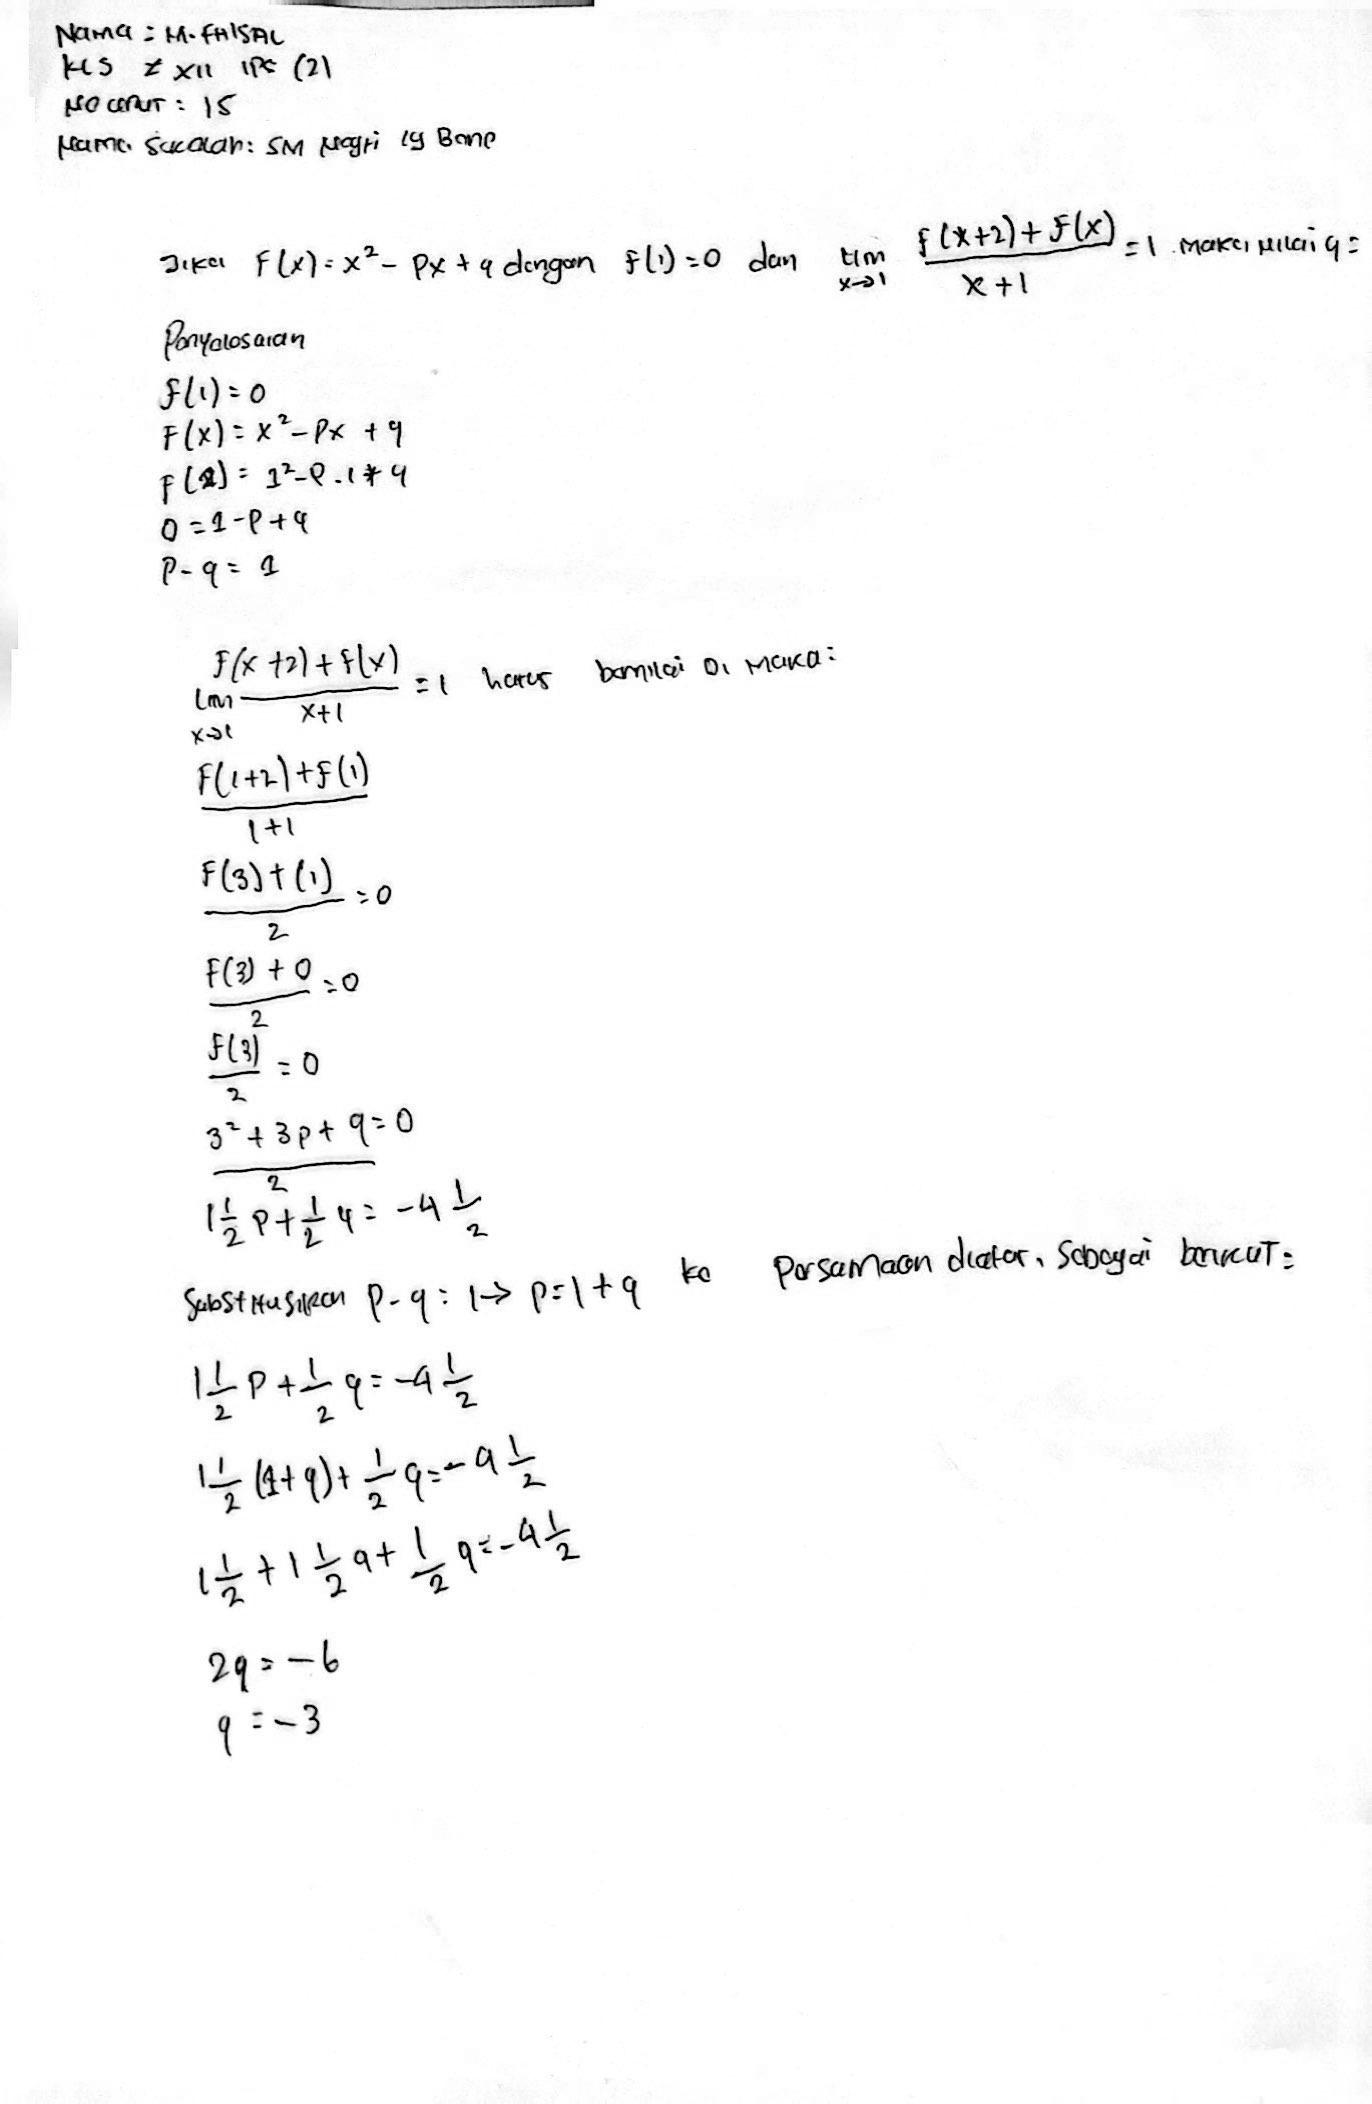 Nama : M. FAISAL
KLS : XII IPS (2)
NO URUT : 15
Nama Sekolah : SM Negri 19 Bone
Jika F(x) = x² - Px + q dengan f(1) = 0 dan lim x→1 f(x+2) + f(x) / x+1 = 1 maka nilai q =
Penyelesaian
f(1) = 0
F(x) = x² - Px + q
F(1) = 1² - P.1 + q
0 = 1 - P + q
P - q = 1
lim x→1 F(x+2) + f(x) / x+1 = 1 harus bernilai 0, maka :
F(1+2) + f(1) / 1+1
F(3) + (1) / 2 = 0
F(3) + 0 / 2 = 0
F(3) / 2 = 0
3² + 3p + q = 0 / 2
1 1/2 P + 1/2 q = -4 1/2
Substitusikan P - q = 1 → P = 1 + q ke Persamaan diatas, Sebagai berikut :
1 1/2 P + 1/2 q = -4 1/2
1 1/2 (1+q) + 1/2 q = -4 1/2
1 1/2 + 1 1/2 q + 1/2 q = -4 1/2
2q = -6
q = -3